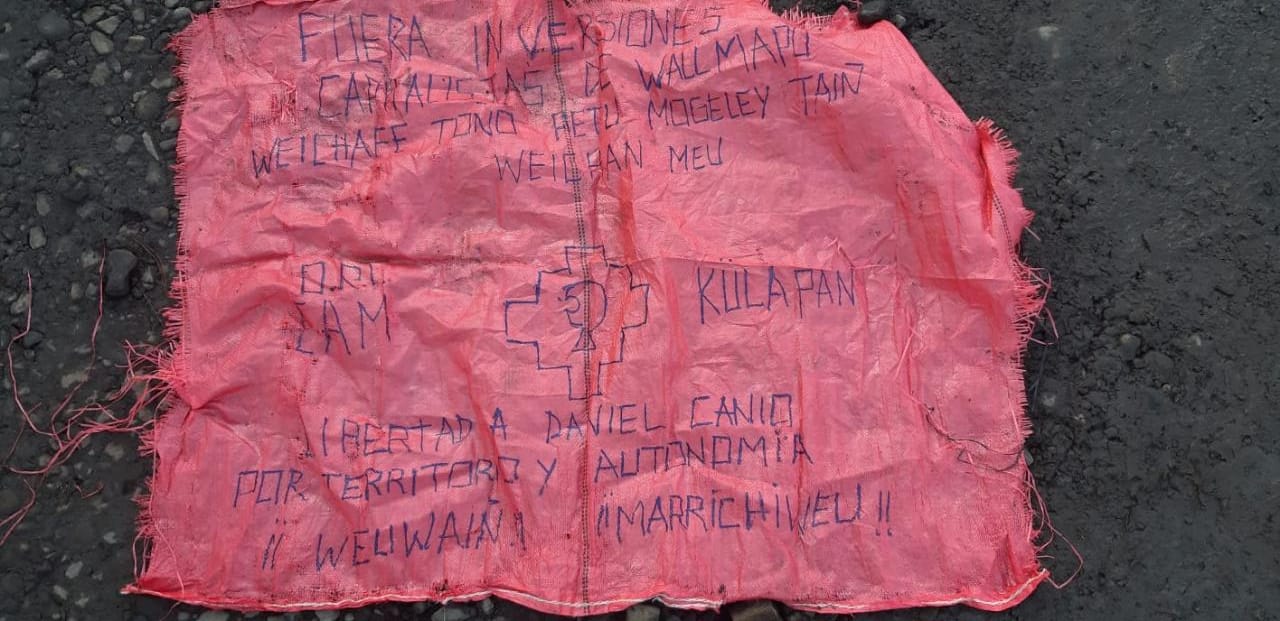 FUERA INVERSIONES
CAPITALISTAS DE WALLMAPU
WEICHAFE TOÑO PETU MOGELEY TAIÑ
WEICHAN MEU
O.R.T.
CAM
KÜLAPAN
LIBERTAD A DANIEL CANIO
POR TERRITORO Y AUTONOMÍA
¡¡ WEUWAIÑ! ¡¡MARRICHIWEU!!